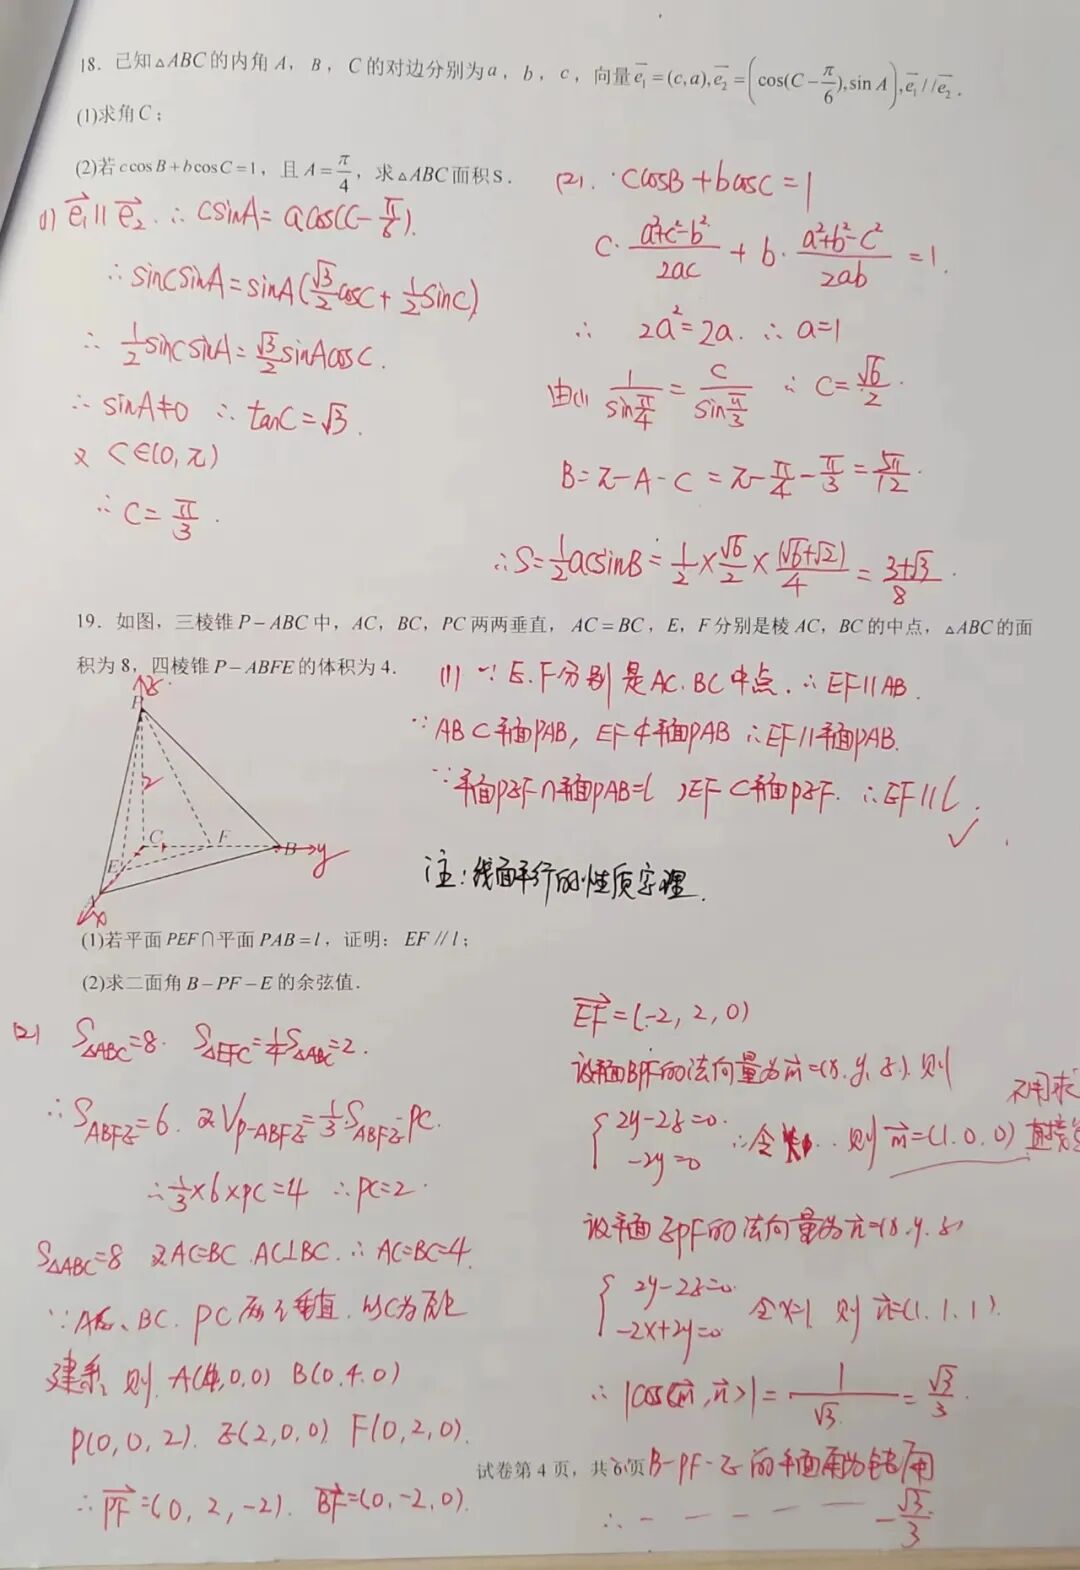 18. 已知△ABC的内角A, B, C的对边分别为a, b, c, 向量e₁=(c,a),e₂=(cos(C-π/6),sin A),e₁//e₂.
(1)求角C;
(2)若ccosB+bcosC=1, 且A=π/4, 求△ABC面积S.
(1) e₁∥e₂. ∴ csinA=acos(C-π/6).
∴ sinCsinA=sinA(√3/2cosC+1/2sinC)
∴ 1/2sinCsinA=√3/2sinAcosC.
∵ sinA≠0 ∴ tanC=√3.
又 C∈(0,π)
∴ C=π/3.
(2). ∵ccosB+bcosC=1
c·(a²+c²-b²)/2ac + b·(a²+b²-c²)/2ab =1.
∴ 2a²=2a. ∴ a=1
由(1) 1/sinπ/4 = c/sinπ/3 ∴ c=√6/2.
B=π-A-C=π-π/4-π/3=5π/12.
∴S=1/2acsinB=1/2×√6/2×(√6+√2)/4=(3+√3)/8.
19. 如图, 三棱锥P-ABC中, AC, BC, PC两两垂直, AC=BC, E, F分别是棱AC, BC的中点, △ABC的面
积为8, 四棱锥P-ABFE的体积为4.
(1) ∵ E.F分别是AC.BC中点. ∴ EF∥AB.
∵ AB⊂平面PAB, EF⊄平面PAB ∴EF∥平面PAB.
∵平面PEF∩平面PAB=l, EF⊂平面PEF. ∴EF∥l.
✓
注:线面平行的性质定理.
P z
2
C F B y
E
A x
(1)若平面PEF∩平面PAB=l, 证明: EF∥l;
(2)求二面角B-PF-E的余弦值.
(2) S△ABC=8. S△EFC=1/4S△ABC=2.
∴SABFE=6. 又VP-ABFE=1/3·SABFE·PC.
∴1/3×6×PC=4 ∴PC=2.
S△ABC=8 又AC=BC.AC⊥BC.∴ AC=BC=4.
∵AC、BC.PC两两垂直.以C为原点
建系, 则 A(4,0,0) B(0.4.0)
P(0,0,2). E(2,0,0) F(0,2,0).
∴ PF=(0,2,-2). BF=(0,-2,0).
EF=(-2,2,0)
设平面BPF的法向量为m=(x.y.z).则
{2y-2z=0. -2y=0 ∴令 则m=(1.0.0)
不用求
设平面EPF的法向量为n=(x.y.z)
{2y-2z=0. -2x+2y=0 令x=1 则 n=(1.1.1).
∴ |cos<m,n>|=1/√3=√3/3.
试卷第4页, 共6页
∵B-PF-E的平面角为钝角
∴ - — — — — -√3/3